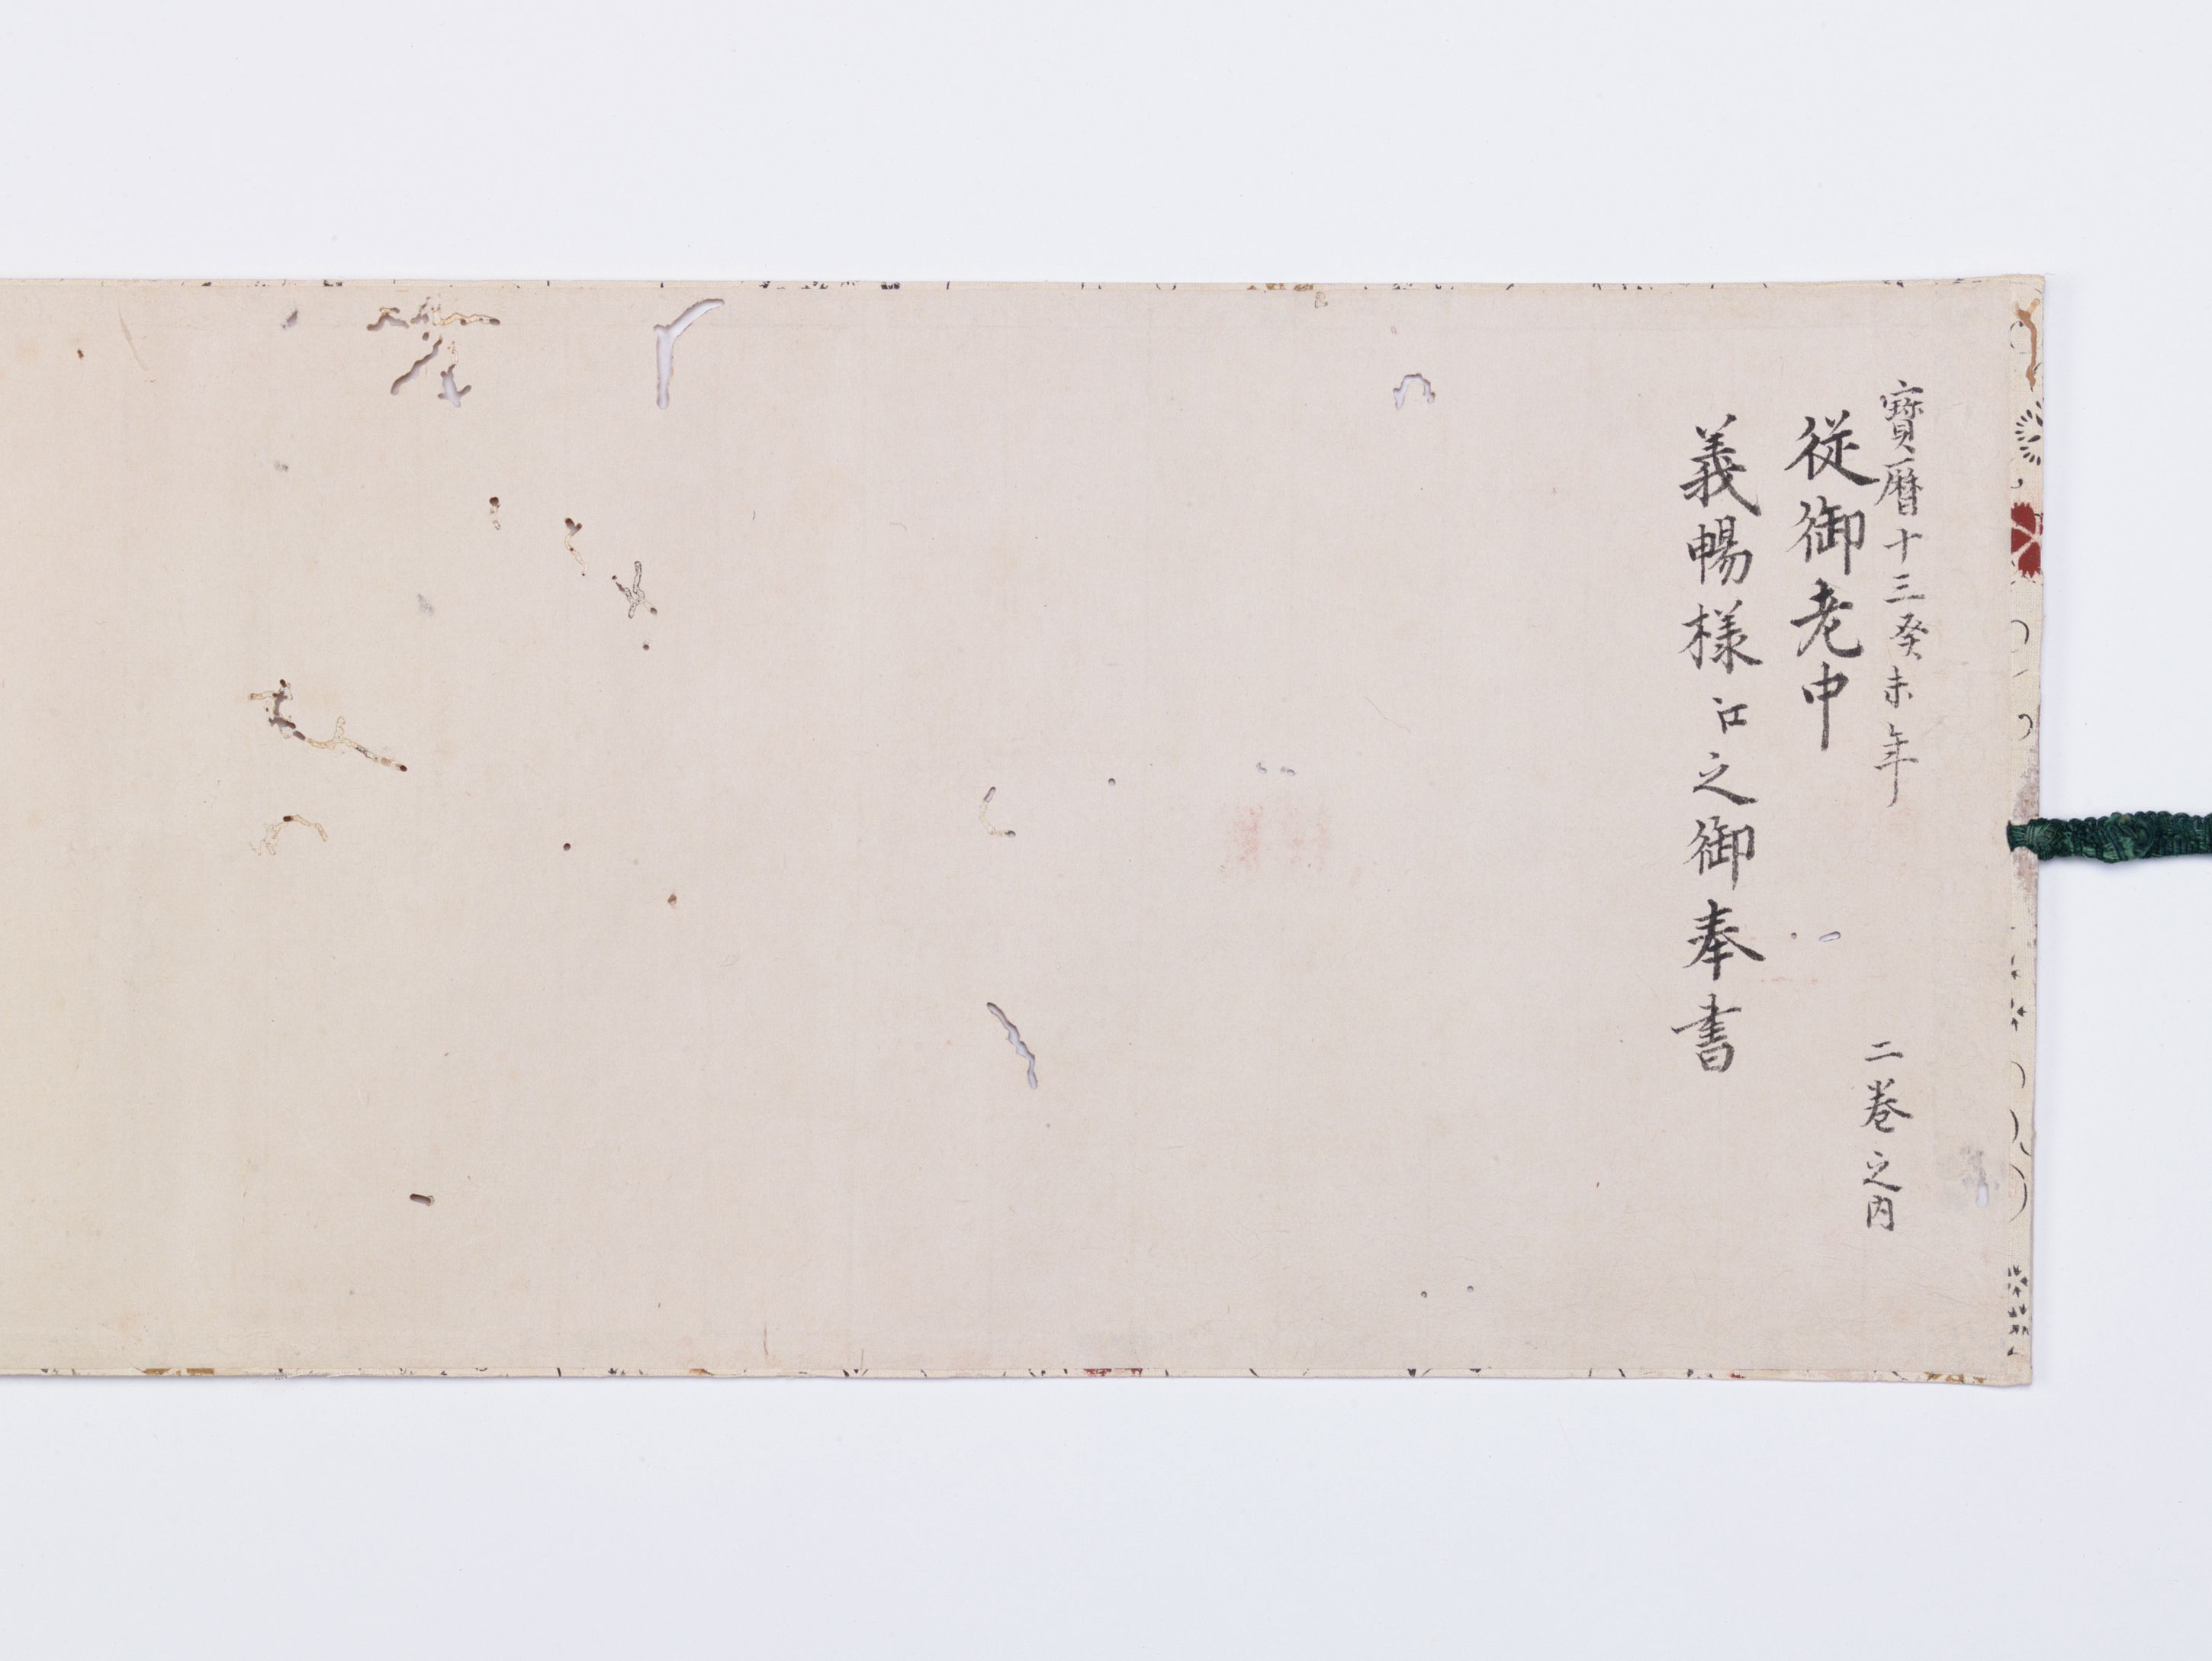 寶曆十三癸未年
二卷之内
従御老中
義暢様江之御奉書